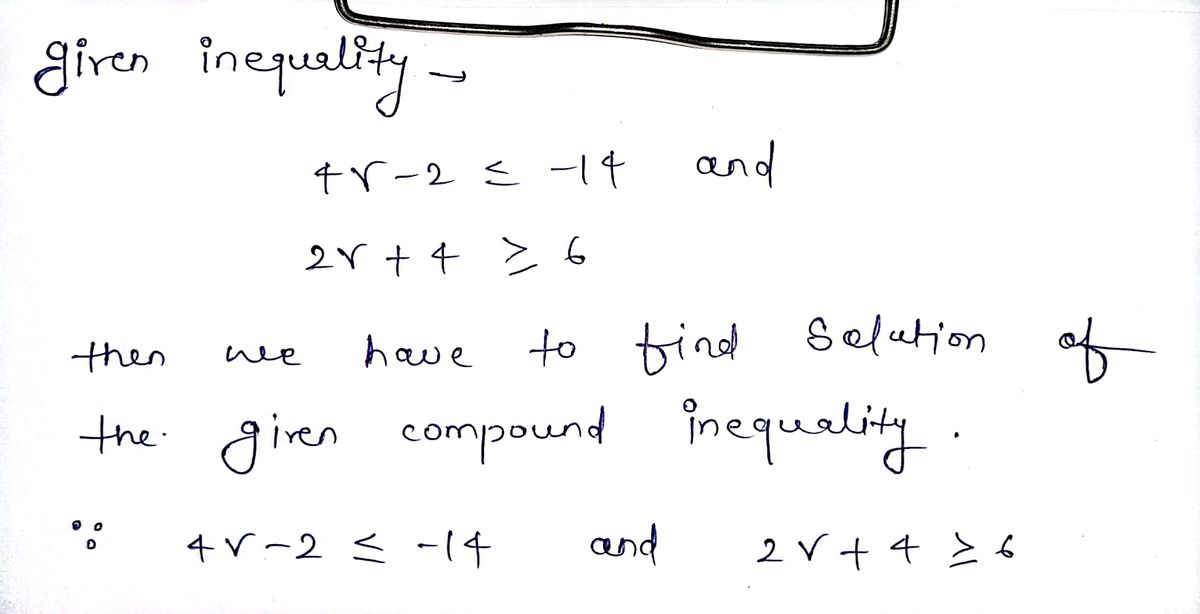 given inequality →
4r - 2 ≤ -14 and
2r + 4 ≥ 6
then we have to find Solution of
the given compound inequality.
∵ 4r - 2 ≤ -14 and 2r + 4 ≥ 6